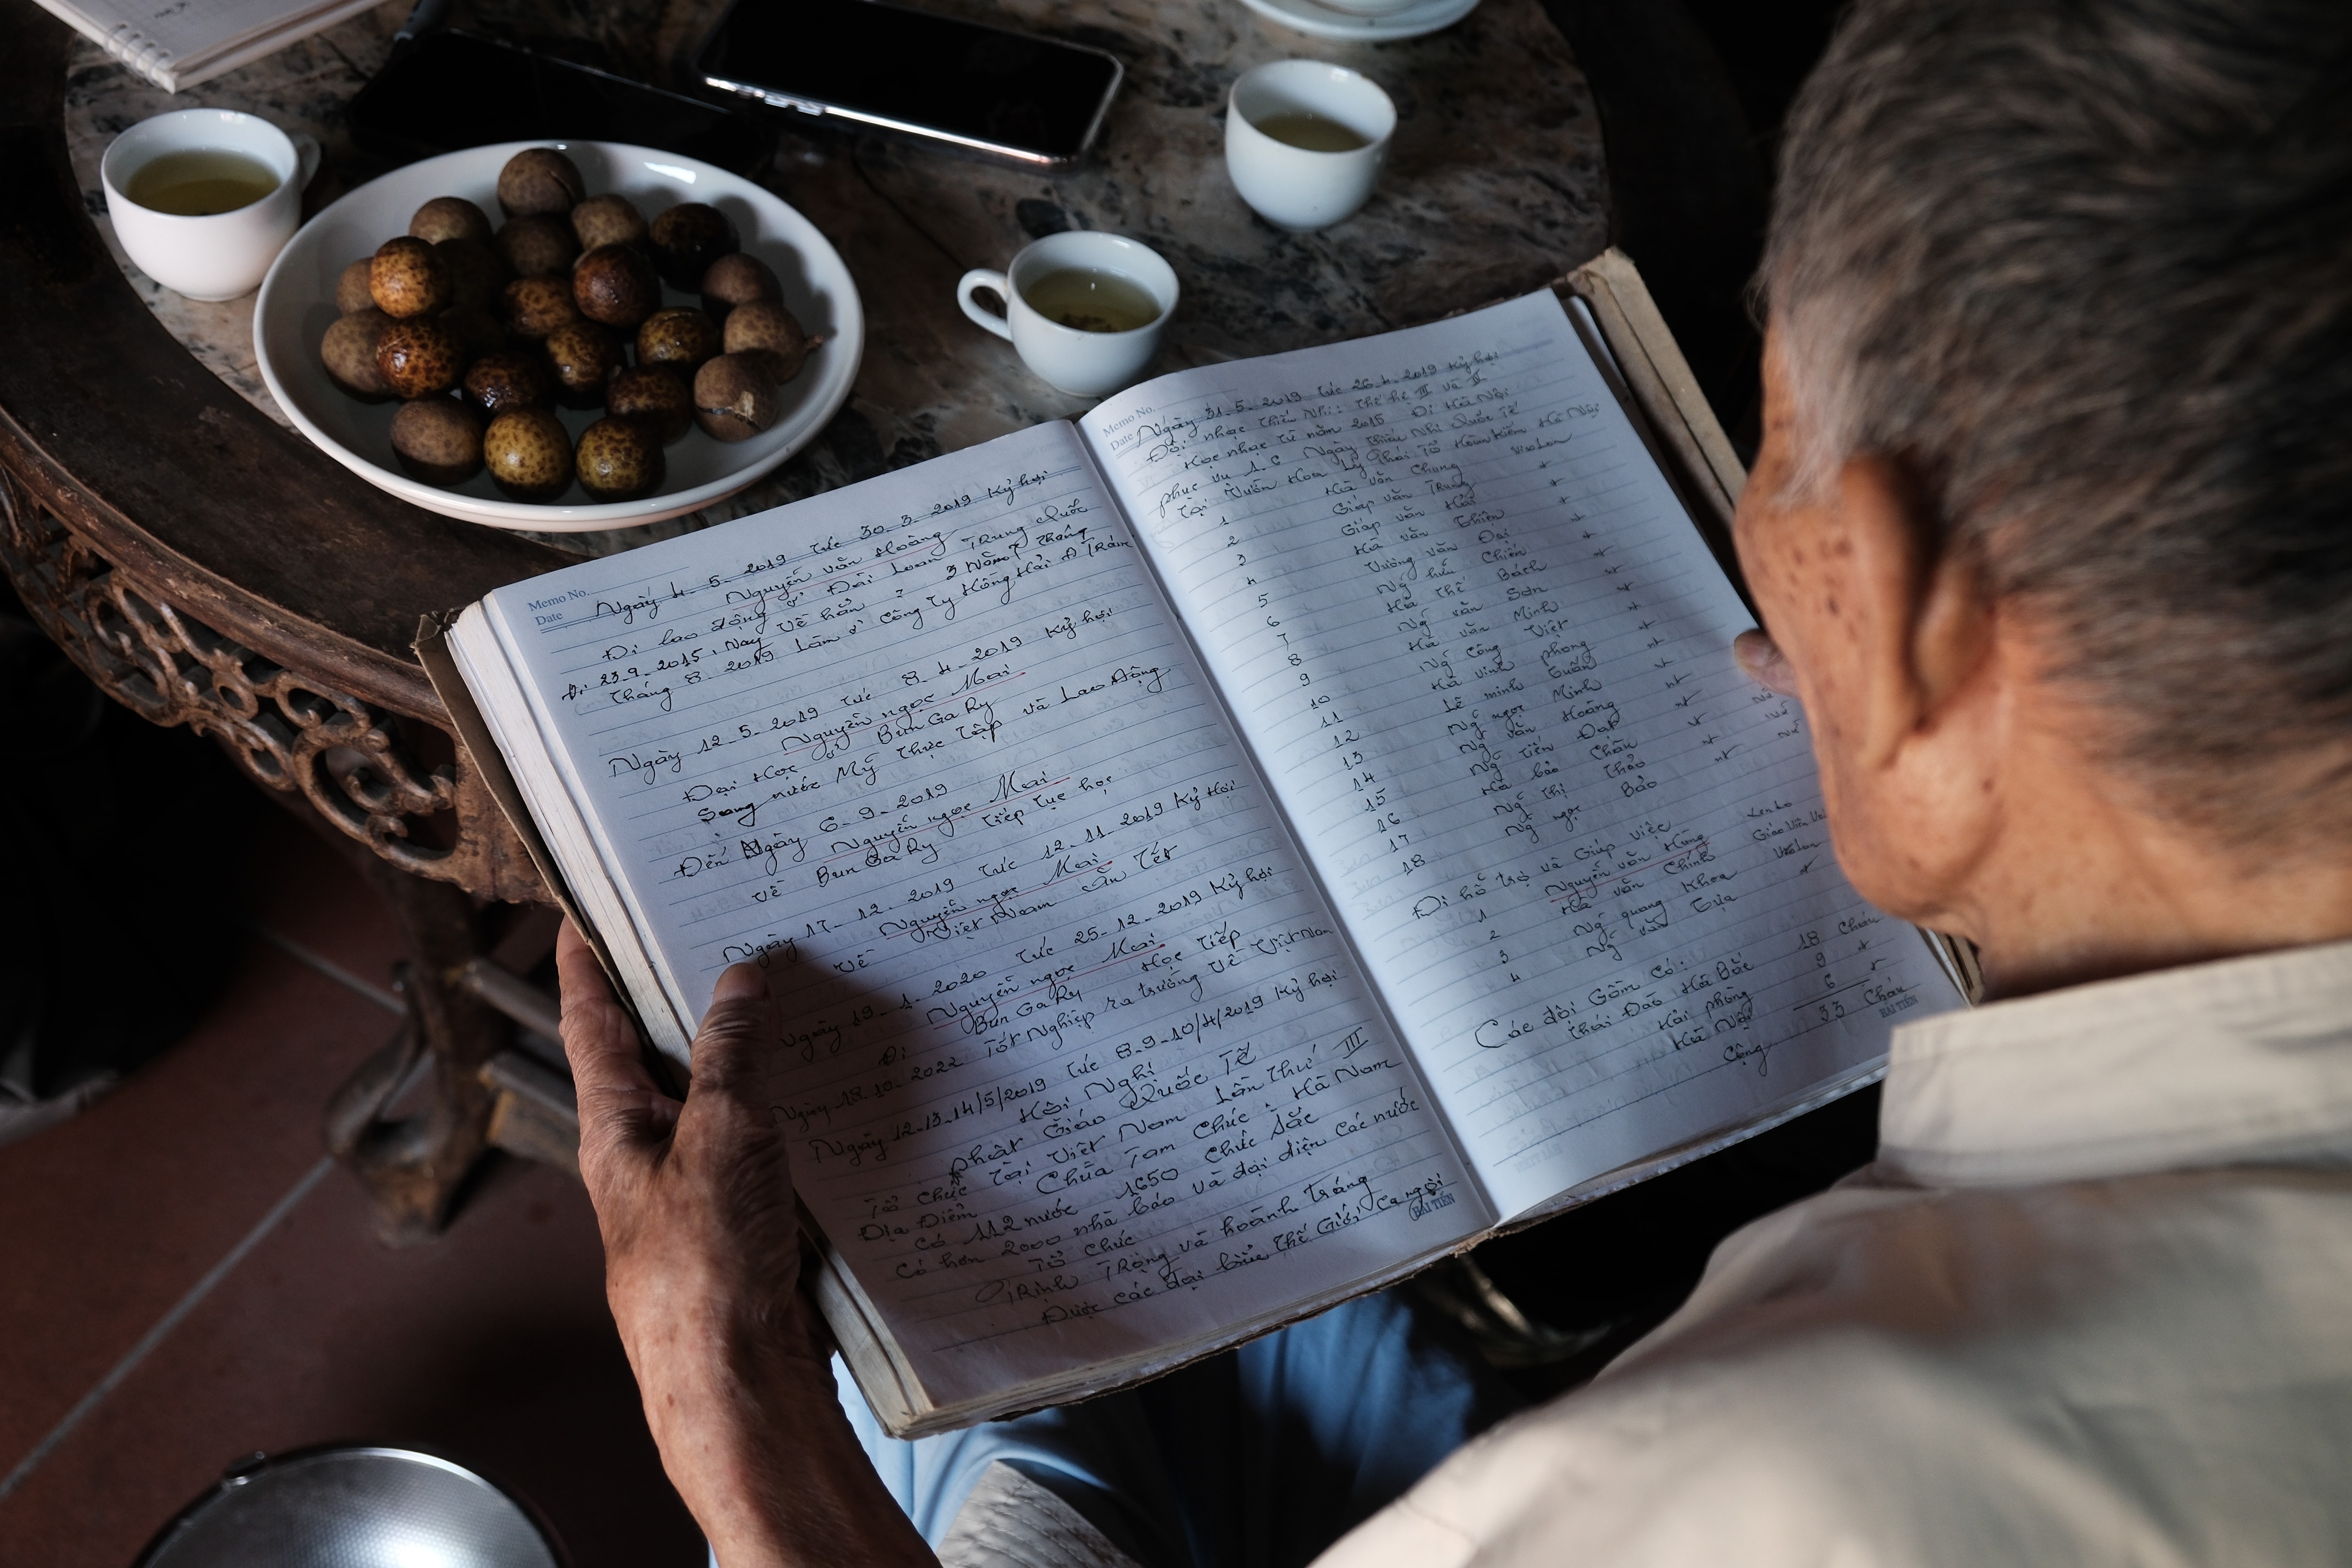 Memo No.
Date
Ngày 4-5-2019 tức 30.3.2019 Kỷ hợi
Nguyễn văn Hoàng
Đi lao động ở Đài Loan Trung Quốc
Đi 23.9.2015, Nay về hẳn = 3 năm 7 tháng
Tháng 8.2019 làm ở Công Ty Hồng Hải Đ Trám
Ngày 12-5-2019 tức 8-4-2019 Kỷ hợi
Nguyễn ngọc Mai
Đại Học ở Bun Ga Ry
Sang nước Mỹ Thực Tập và Lao Động
Đến Ngày 6-9-2019
Nguyễn ngọc Mai
về Bun Ga Ry tiếp tục học
Ngày 17-12-2019 tức 12.11.2019 Kỷ Hợi
Nguyễn ngọc Mai
Về Việt Nam ăn Tết
Ngày 19-1-2020 tức 25-12-2019 Kỷ hợi
Nguyễn ngọc Mai
Đi Bun Ga Ry Học Tiếp
Ngày 18-10-2022 Tốt Nghiệp ra trường về Việt Nam
Ngày 12-13-14/5/2019 tức 8-9-10/4/2019 Kỷ hợi
Hội Nghị
phật Giáo Quốc Tế
Tổ chức Tại Việt Nam Lần thứ III
Địa Điểm Chùa Tam Chúc. Hà Nam
Có 112 nước 1650 chức sắc
Có hơn 2000 nhà báo và đại diện các nước
Tổ chức
Trịnh Trọng và hoành tráng
Được các đại biểu thế Giới Ca ngợi
HẢI TIẾN
Memo No.
Date
Ngày 31-5-2019 tức 26-4-2019 Kỷ hợi
Đội nhạc thiếu Nhi: thế hệ III và II
Học nhạc từ năm 2015 Đi Hà Nội
phục vụ 1.6 Ngày thiếu Nhi Quốc Tế
Tại Vườn Hoa Lý thái Tổ Hoàn Kiếm Hà Nội
1 Hà văn Chung Violon
2 Giáp văn Trung
3 Giáp văn Hải
4 Hà văn Thiện
5 Vương văn Đại
6 Ng hữu Chiến
7 Hà thế Bách
8 Ng văn Sơn
9 Hà văn Minh
10 Ng Công Việt
11 Hà vinh phong
12 Lê minh Tuấn
13 Ng ngọc Minh
14 Ng văn Hoàng
15 Ng tiến Đạt
16 Hà bảo Châu
17 Ng Thị Thảo
18 Ng ngọc Bảo
Đi hỗ trợ và Giúp việc
1 Nguyễn văn Hùng
2 Hà văn Chính Giáo Viên
3 Ng quang Khoa Violon
4 Ng
Các đội Gồm Có:
Thái Đào Hà Bắc 18 Cháu
Hải phòng 9
Hà Nội 6
Cộng 33 Cháu
HẢI TIẾN